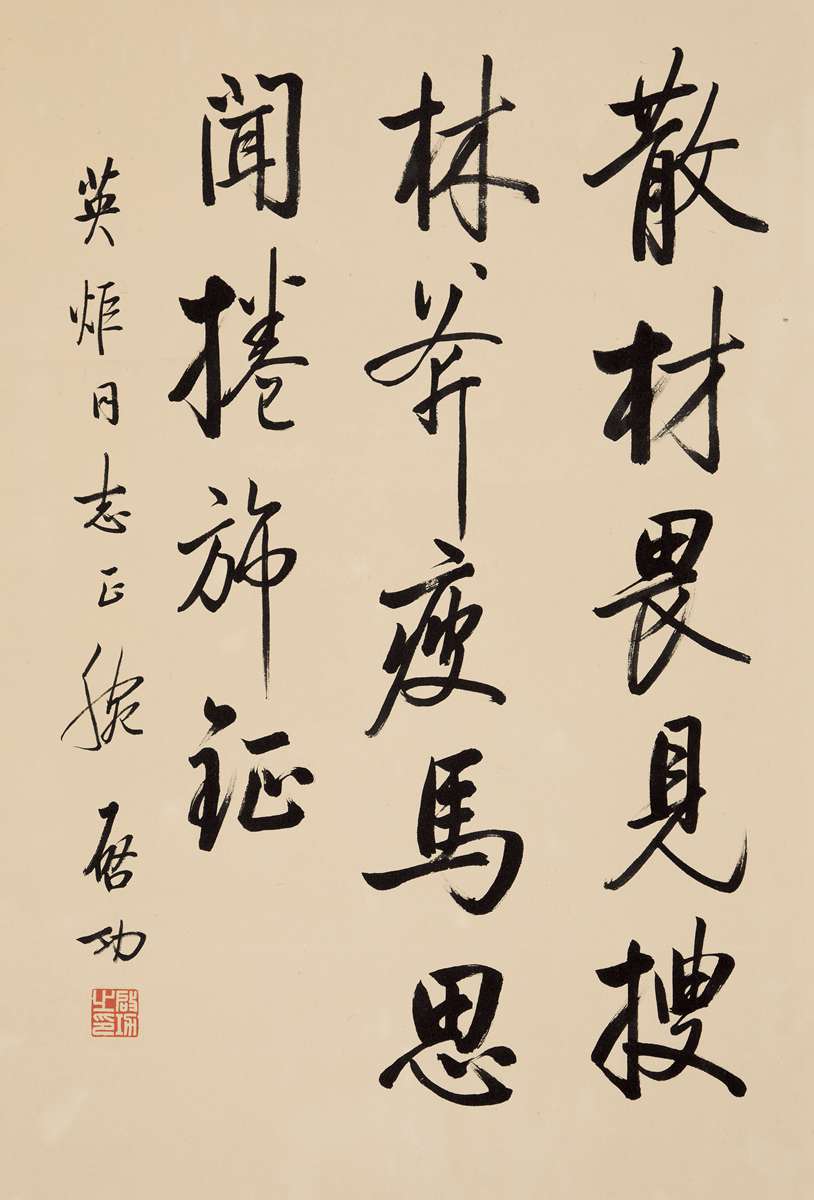 散材畏見搜
林斧瘦馬思
聞捲旆鉦
英炬同志正腕
啓功
啟功之印